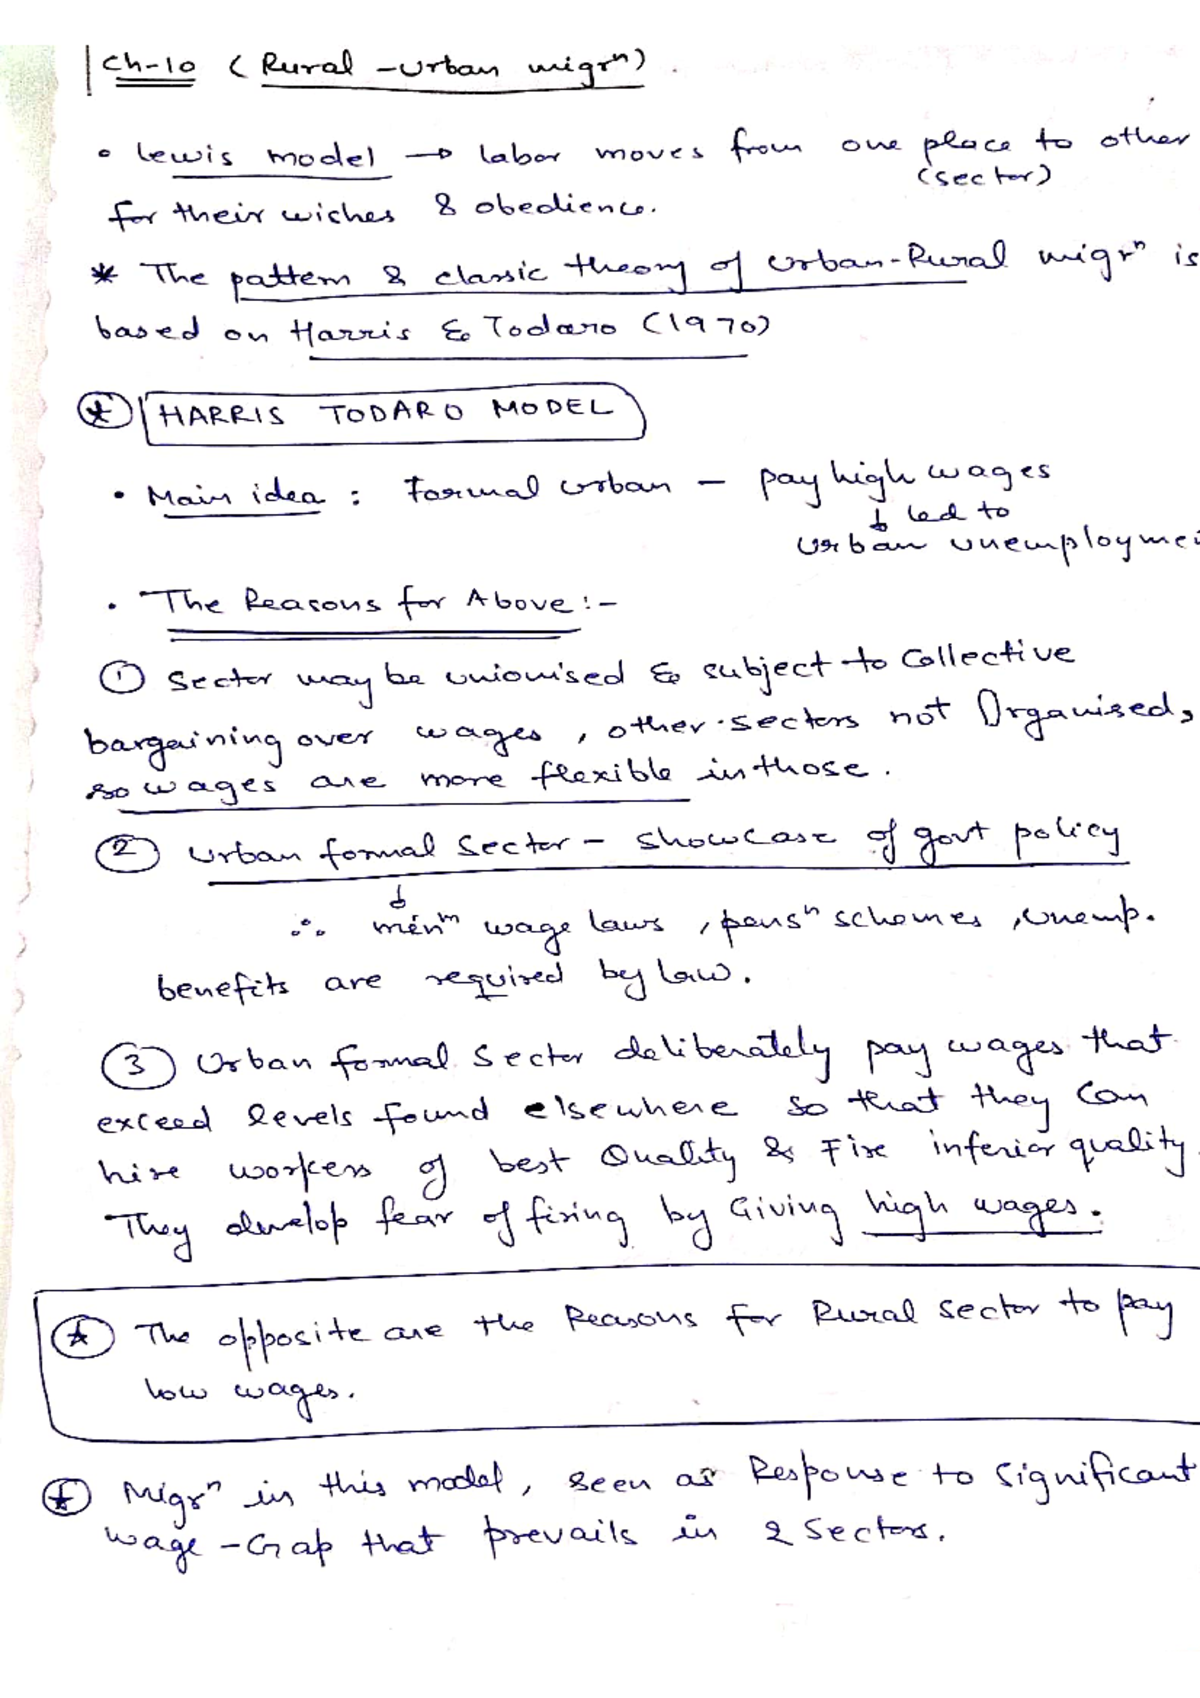 Ch-10 (Rural-Urban migrⁿ)
• Lewis model → labor moves from one place to other
(sector)
for their wishes & obedience.
* The pattern & classic theory of Urban-Rural migrⁿ is
based on Harris & Todaro (1970)
HARRIS TODARO MODEL
• Main idea : Formal urban - pay high wages
↓ led to
Urban unemployme
• The Reasons for Above :-
① Sector may be unionised & subject to Collective
bargaining over wages, other sectors not Organised,
so wages are more flexible in those.
② Urban formal Sector - Showcase of govt policy
↓
∴ minᵐ wage laws, pensⁿ schemes, unemp.
benefits are required by law.
③ Urban formal Sector deliberately pay wages that
exceed levels found elsewhere so that they can
hire workers of best Quality & Fire inferior quality.
They develop fear of firing by Giving high wages.
The opposite are the Reasons for Rural sector to pay
low wages.
Migrⁿ in this model, seen as Response to Significant
wage-Gap that prevails in 2 Sectors.